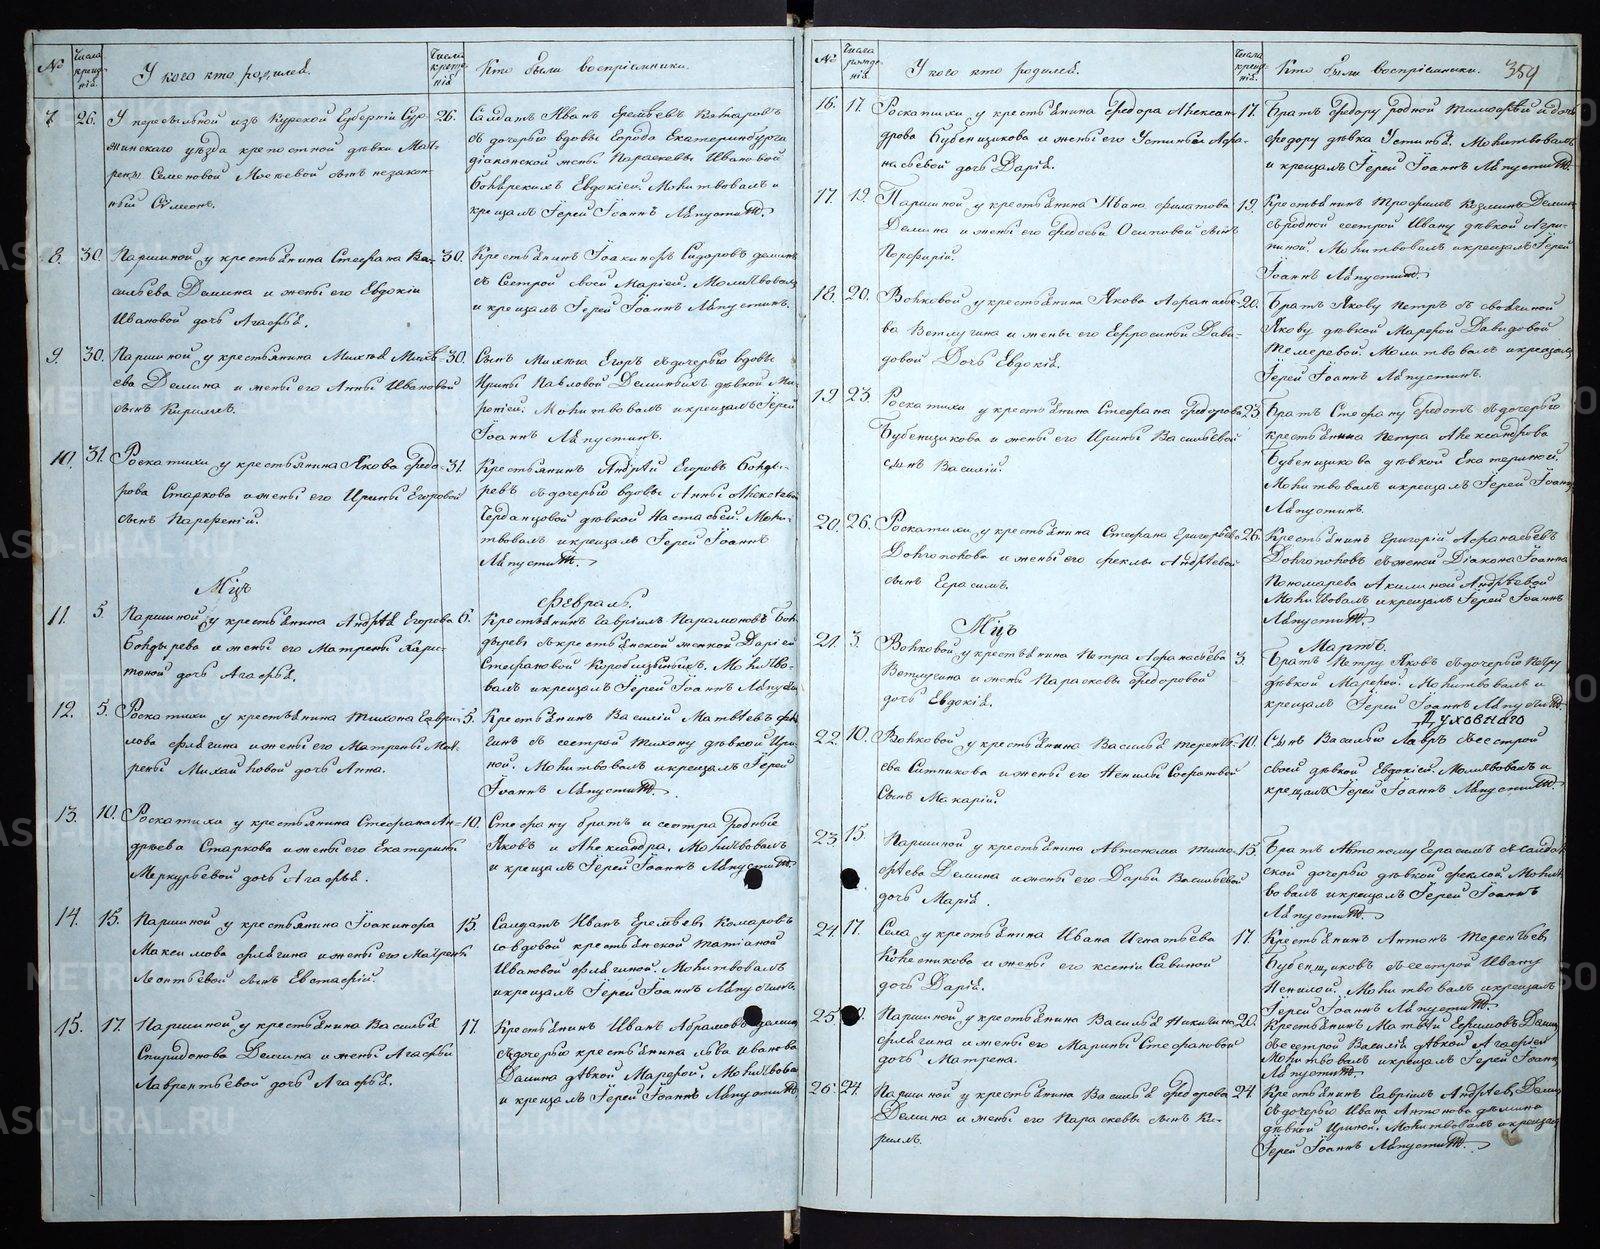 №
Числа крещенія.
У кого кто родился.
Числа крещенія.
Кто были воспріемники.
7. 26. У пересыльной изъ Курской Губерніи Суд-
жинскаго уѣзда крепостной дѣвки Мат-
рены Семеновой сынъ незакон-
ный Сѵмеонъ.
26. Салдатъ Иванъ Еремѣевъ Комаровъ
съ дочерью вдовы города Екатеринбурга
діаконской жены Параскевы Ивановой
Евдокіей. Молитвовалъ и
крещалъ Іерей Іоаннъ Лѣпустинъ.
8. 30. Паршиной у крестьянина Стефана Ва-
сильева Демина и жены его Евдокіи
Ивановой дочь Агафья.
30. Крестьянинъ Іоакинфъ Сидоровъ деминъ
съ Сестрой своей Маріей. Молитвовалъ
и крещалъ Іерей Іоаннъ Лѣпустинъ.
9. 30. Паршиной у крестьянина Михѣя Михѣ-
ева Демина и жены его Анны Ивановой
сынъ Кириллъ.
30. Сынъ Михѣя Егоръ съ дочерью вдовы
Ирины Павловой Деминыхъ дѣвкой Ми-
роніей. Молитвовалъ и крещалъ Іерей
Іоаннъ Лѣпустинъ.
10. 31. Роскатихи у крестьянина Якова Федо-
рова Старкова и жены его Ирины Егоровой
сынъ Парфеній.
31. Крестьянинъ Андрей Егоровъ Болды-
ревъ съ дочерью вдовы Анны Алексѣевой
Черданцовой дѣвкой Настасьей. Моли-
твовалъ и крещалъ Іерей Іоаннъ
Лѣпустинъ.
Мцъ
Февраль.
11. 5. Паршиной у крестьянина Андрѣя Егорова
Болдырева и жены его Матрены Хари-
тоной дочь Агафья.
6. Крестьянинъ Гавріилъ Парамоновъ Бол-
дыревъ съ крестьянской женкой Дарьей
Стефановой. Молитво-
валъ и крещалъ Іерей Іоаннъ Лѣпустинъ
12. 5. Роскатихи у крестьянина Тихона Гаври-
лова Флягина и жены его Матрены Мат-
рены Михайловой дочь Анна.
5. Крестьянинъ Василій Матвѣевъ Фля-
гинъ съ сестрой Тихону дѣвкой Ири-
ной. Молитвовалъ и крещалъ Іерей
Іоаннъ Лѣпустинъ.
13. 10. Роскатихи у крестьянина Стефана Ан-
дрѣева Старкова и жены его Екатерины
Меркурьевой дочь Агафья.
10. Стефану братъ и сестра родные
Яковъ и Александра. Молитвовалъ
и крещалъ Іерей Іоаннъ Лѣпустинъ
14. 15. Паршиной у крестьянина Іоакинфа
Максимова Флягина и жены его Матрены
Леонтьевой сынъ Евстафій.
15. Салдатъ Иванъ Еремѣевъ Комаровъ
со вдовой крестьянской Татіаной
Ивановой Флягиной. Молитвовалъ
и крещалъ Іерей Іоаннъ Лѣпустинъ.
15. 17. Паршиной у крестьянина Василья
Спиридонова Демина и жены Агафьи
Лаврентьевой дочь Агафья.
17. Крестьянинъ Иванъ Абрамовъ деминъ
съ дочерью крестьянина Льва Иванова
Демина дѣвкой Марфой. Молитвова
и крещалъ Іерей Іоаннъ Лѣпустинъ
№
Числа рожденій.
У кого кто родился.
Числа крещеній.
Кто были воспріемники.
359
16. 17. Роскатихи у крестьянина Федора Алексан-
дрова Бубенщикова и жены его Устиньи Афа-
насьевой дочь Дарья.
17. Братъ Федору родной Тимофей и дочь
Федору дѣвка Устинья. Молитвовалъ
и крещалъ Іерей Іоаннъ Лѣпустинъ.
17. 19. Паршиной у крестьянина Ивана Филатова
Демина и жены его Федосьи Осиповой сынъ
Порфирій.
19. Крестьянинъ Трофимъ Козминъ Деминъ
съ родной сестрой Ивану дѣвкой Агри-
пиной. Молитвовалъ и крещалъ Іерей
Іоаннъ Лѣпустинъ
18. 20. Волковой у крестьянина Якова Афанасье-
ва Ветлугина и жены его Ефросиньи Дави-
довой Дочь Евдокія.
20. Братъ Якову Петръ съ свояченой
Якову дѣвкой Марфой Давидовой
Темеревой. Молитвовалъ и крещалъ
Іерей Іоаннъ Лѣпустинъ.
19. 23. Роскатихи у крестьянина Стефана Федорова
Бубенщикова и жены его Ирины Васильевой
сынъ Василій.
23. Братъ Стефану Федотъ съ дочерью
крестьянина Петра Александрова
Бубенщикова дѣвкой Екатериной.
Молитвовалъ и крещалъ Іерей Іоаннъ
Лѣпустинъ.
20. 26. Роскатихи у крестьянина Стефана Григорьева
Долгополова и жены его Феклы Андрѣевой
сынъ Герасимъ.
26. Крестьянинъ Григорій Афанасьевъ
Долгополовъ съ женой Діакона Іоанна
Пономарева Акилиной Андрѣевой
Молитвовалъ и крещалъ Іерей Іоаннъ
Лѣпустинъ.
Мцъ
Мартъ.
21. 3. Волковой у крестьянина Петра Афанасьева
Ветлугина и жены Параскевы Федоровой
дочь Евдокія.
3. Братъ Петру Яковъ съ дочерью Петру
дѣвкой Марфой. Молитвовалъ и
крещалъ Іерей Іоаннъ Лѣпустинъ.
Духовнаго
22. 10. Волковой у крестьянина Василья Теренть-
ева Ситникова и жены его Ненилы Софатовой
Сынъ Макарій.
10. Сынъ Василью Лавръ съ сестрой
своей дѣвкой Евдокіей. Молитвовалъ и
крещалъ Іерей Іоаннъ Лѣпустинъ.
23. 15. Паршиной у крестьянина Автонома Тимо-
фѣева Демина и жены его Дарьи Васильевой
дочь Марія.
15. Братъ Автоному Герасимъ съ салдат-
ской дочерью дѣвкой Феклой Молит-
вовалъ и крещалъ Іерей Іоаннъ
Лѣпустинъ.
24. 17. Села у крестьянина Ивана Игнатьева
Колесникова и жены его Ксеніи Савиной
дочь Дарья.
17. Крестьянинъ Антонъ Терентьевъ
Бубенщиковъ съ сестрой Ивану
Ненилой. Молитвовалъ и крещалъ
Іерей Іоаннъ Лѣпустинъ.
25. Паршиной у крестьянина Василья Никитина
Флягина и жены его Марины Стефановой
дочь Матрена.
20. Крестьянинъ Матвѣй Ефимовъ Деминъ
съ сестрой Василья дѣвкой Агафьей
Молитвовалъ и крещалъ Іерей Іоаннъ
Лѣпустинъ.
26. 24. Паршиной у крестьянина Василья Федорова
Демина и жены его Параскевы сынъ Ки-
риллъ.
24. Крестьянинъ Гавріилъ Андрѣевъ Деминъ
съ дочерью Ивана Антонова Демина
дѣвкой Ириной. Молитвовалъ и крещалъ
Іерей Іоаннъ Лѣпустинъ.